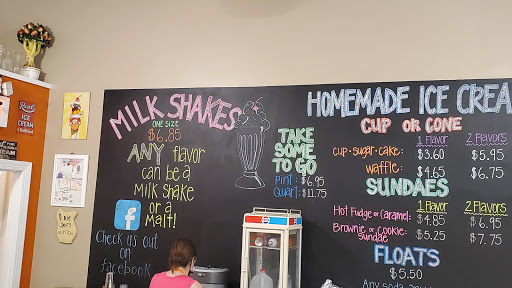 MILK SHAKES
ONE SIZE
$6.85
ANY flavor
can be a
milk shake
or a
malt!
f
Check us out
on
facebook
TAKE
SOME
TO GO
Pint: $6.95
Quart: $11.75
HOMEMADE ICE CREA
CUP OR CONE
1 Flavor 2 Flavors
cup-sugar-cake: $3.60 $5.95
waffle: $4.65 $6.75
SUNDAES
1 Flavor 2 Flavors
Hot Fudge or Caramel: $4.85 $6.95
Brownie or Cookie: $5.25 $7.75
sundae
FLOATS
$5.50
Any soda
ICE CREAM